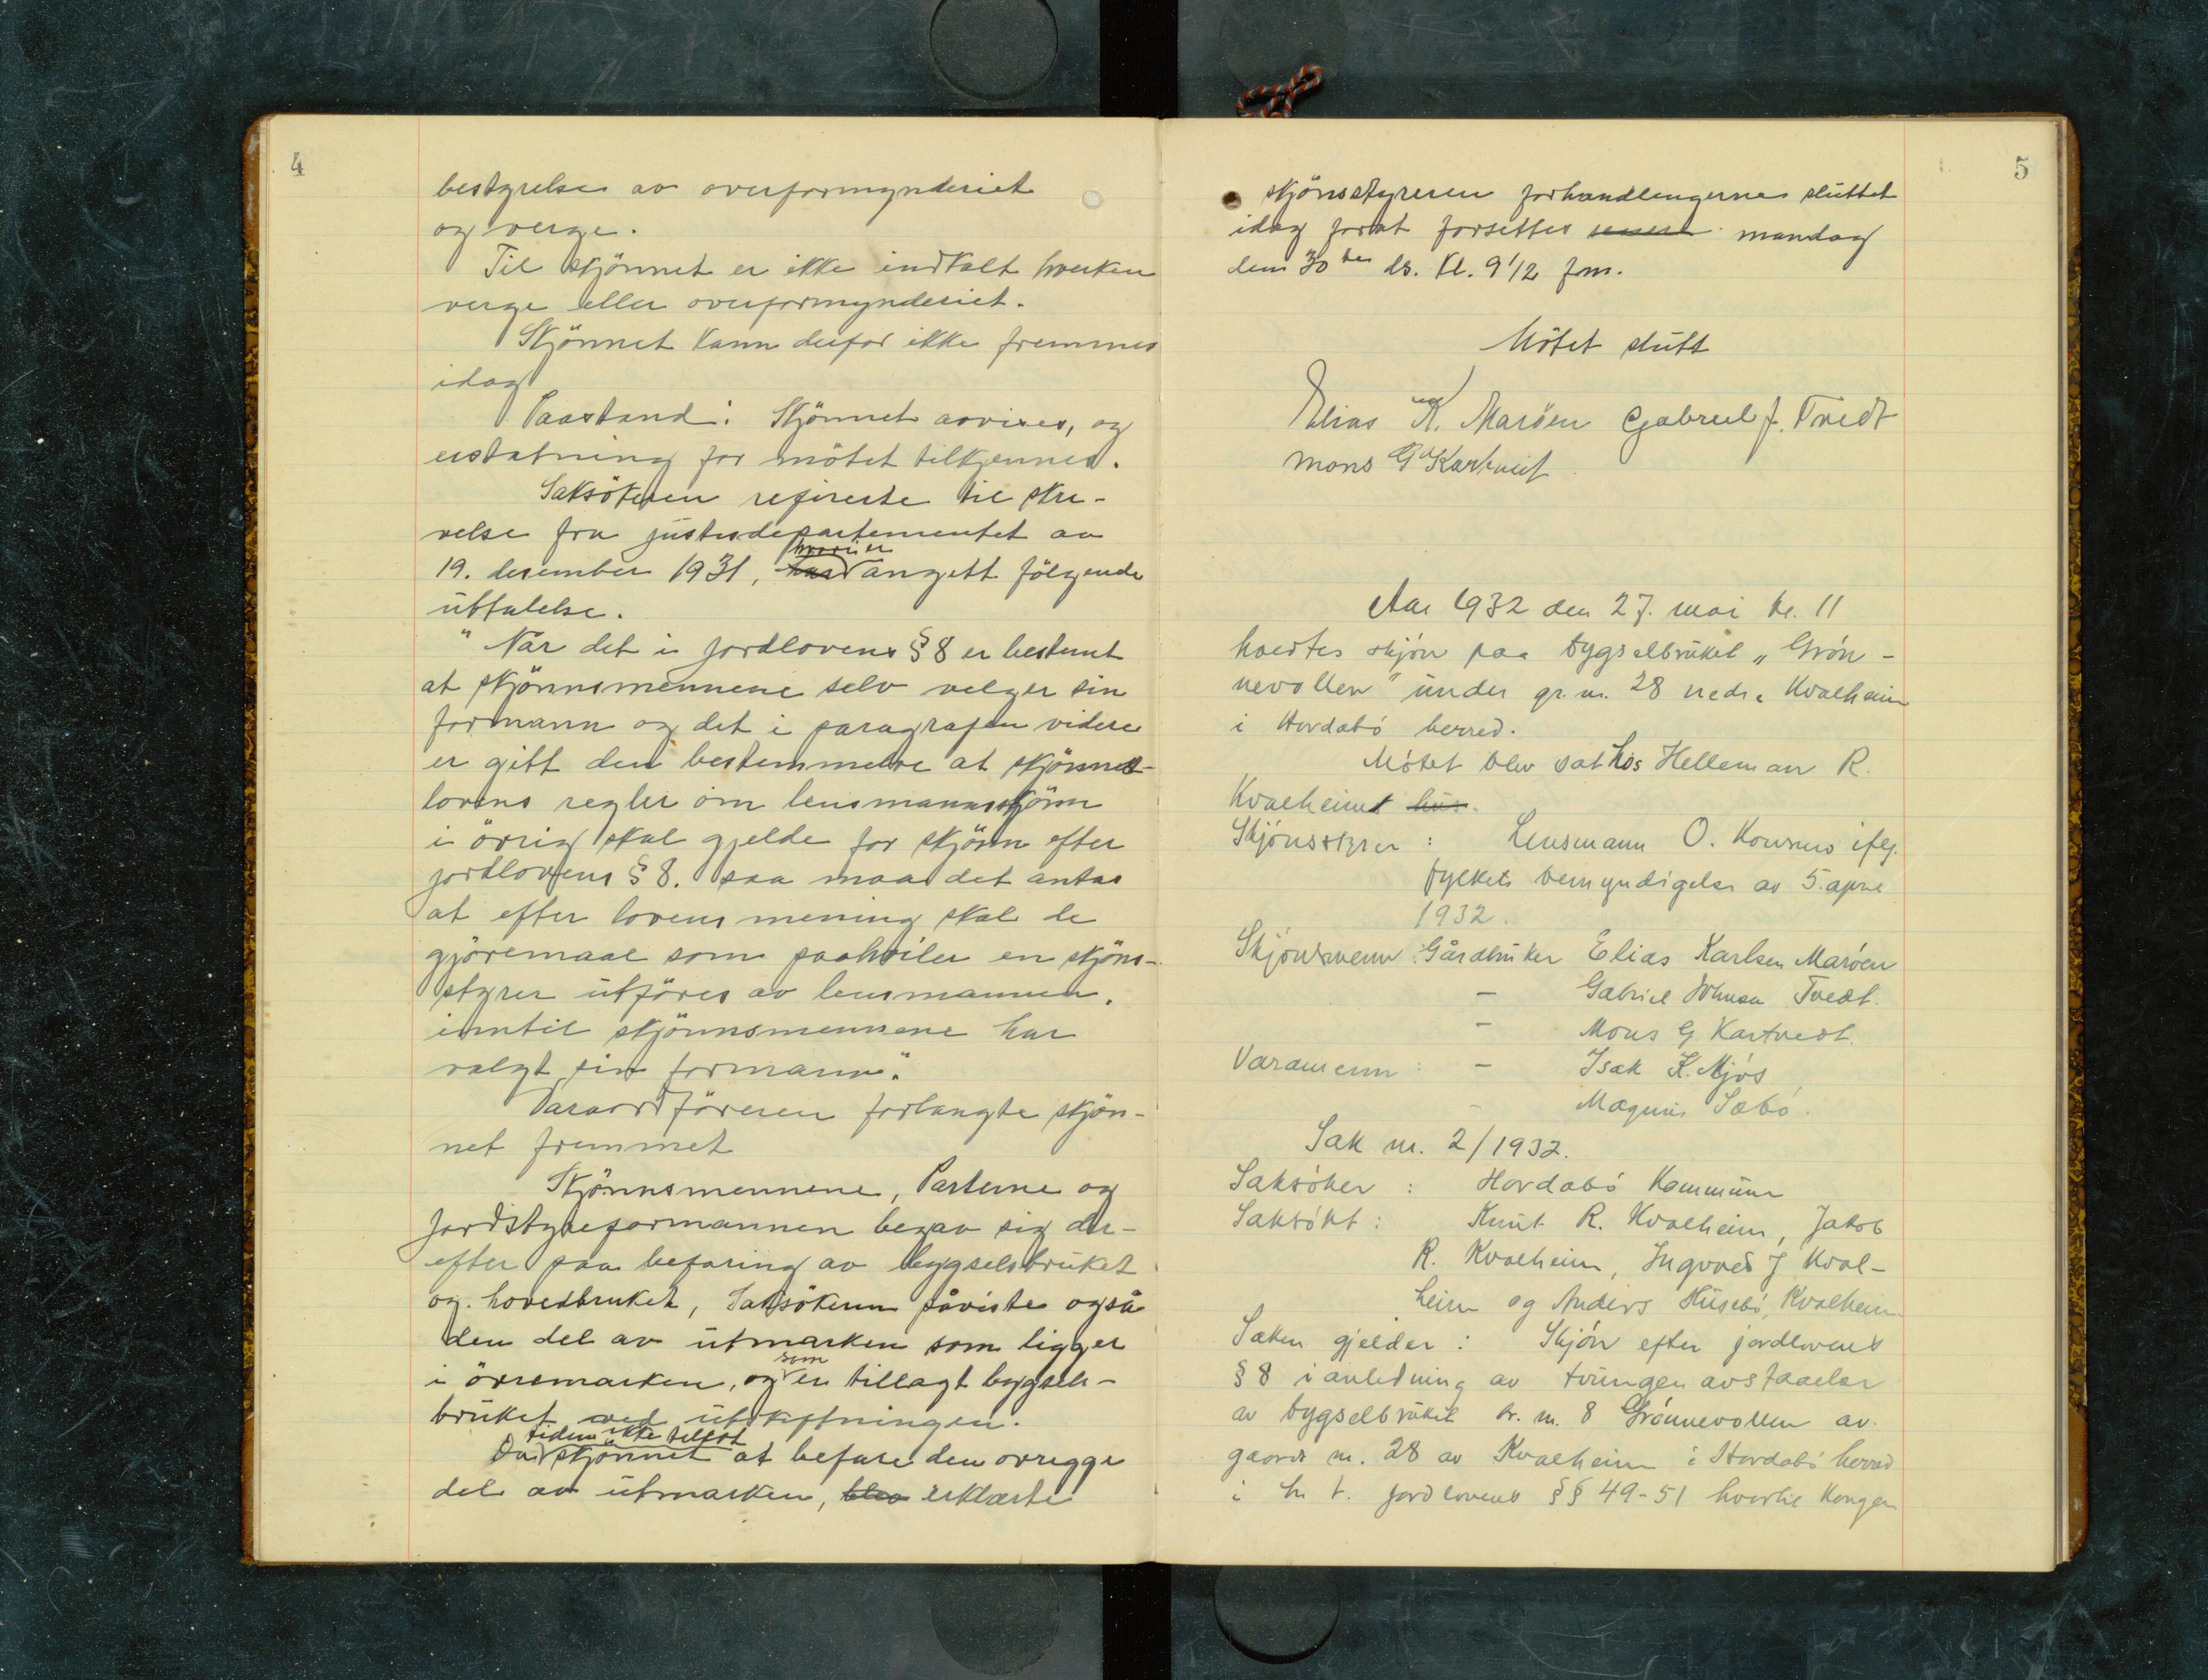 4
bestyrelse av overformynderiet
og verge.
Til skjönnet er ikke indkalt hverken
verge eller overformynderiet.
Skjönnet kann derfor ikke fremmes
idag
Paastand: Skjönnet avvises, og
erstatning for mötet tilkjennes.
Saksökeren refererte til skri-
velse fra justisdepartementet av
19. desember 1931, hvori er angett fölgende
uttalelse.
" Når det i jordlovens § 8 er bestemt
at skjönnsmennene selv velger sin
formann og det i paragrafen videre
er gitt den bestemmelse at skjönnet-
lovens regler om lensmannsskjönn
i övrig skal gjelde for skjönn efter
jordlovens § 8. saa maa det antas
at efter lovens mening skal de
gjöremaal som paahviler en skjöns-
styrer utföres av lensmannen,
inntil skjönnsmennene har
valgt sin formann."
Varaordföreren forlangte skjön-
net fremmet
Skjönnsmennene, Parterne og
jordstyreformannen begav sig der-
efter paa befaring av bygselsbruket
og hovedbruket, Saksökeren påviste også
den del av utmarken som ligger
i övremarken, og som er tillagt bygsels-
bruket ved utskiftningen.
Da tiden ikke tillot skjönnet at befare den övrigge
del av utmarken, blev erklærte
5
skjönsstyreren forhandlingerne sluttet
idag forat forsettes senere mandag
den 30 te ds. kl. 9 1/2 fm.
Mötet slutt
Elias K. Maröen Gabriel J. Tvedt
Mons G Kartveit
Aar 1932 den 27. mai kl. 11
holdtes skjön paa bygselbruket „Grön-
nevollen" under gr. nr. 28 nedre Kvalheim
i Hordabö herred.
Mötet blev sat hos Helleman R.
Kvalheims hus.
Skjönsstyrer : Lensmann O. ifly.
fylkets bemyndigelse av 5. april
1932.
Skjönsmenn : Gårdbruker Elias Karlsen Maröen
- Gabriel Johnsen Tvedt.
- Mons G Kartvedt.
Varamenn : - Isak K. Mjös
- Magnus Säbö.
Sak nr. 2/1932.
Saksöker : Hordabö Kommune
Saksökt : Knut R. Kvalheim, Jakob
R. Kvalheim, Ingvald J Kval-
heim og Anders Husebö, Kvalheim
Saken gjelder : Skjön efter jordlovens
§ 8 i anledning av tvungen avstaaelse
av bygselbruket br. nr. 8 Grönnevollen av
gaards nr. 28 av Kvalheim i Hordabö herred
i h. t. jordlovens §§ 49-51 hvortil Kongen